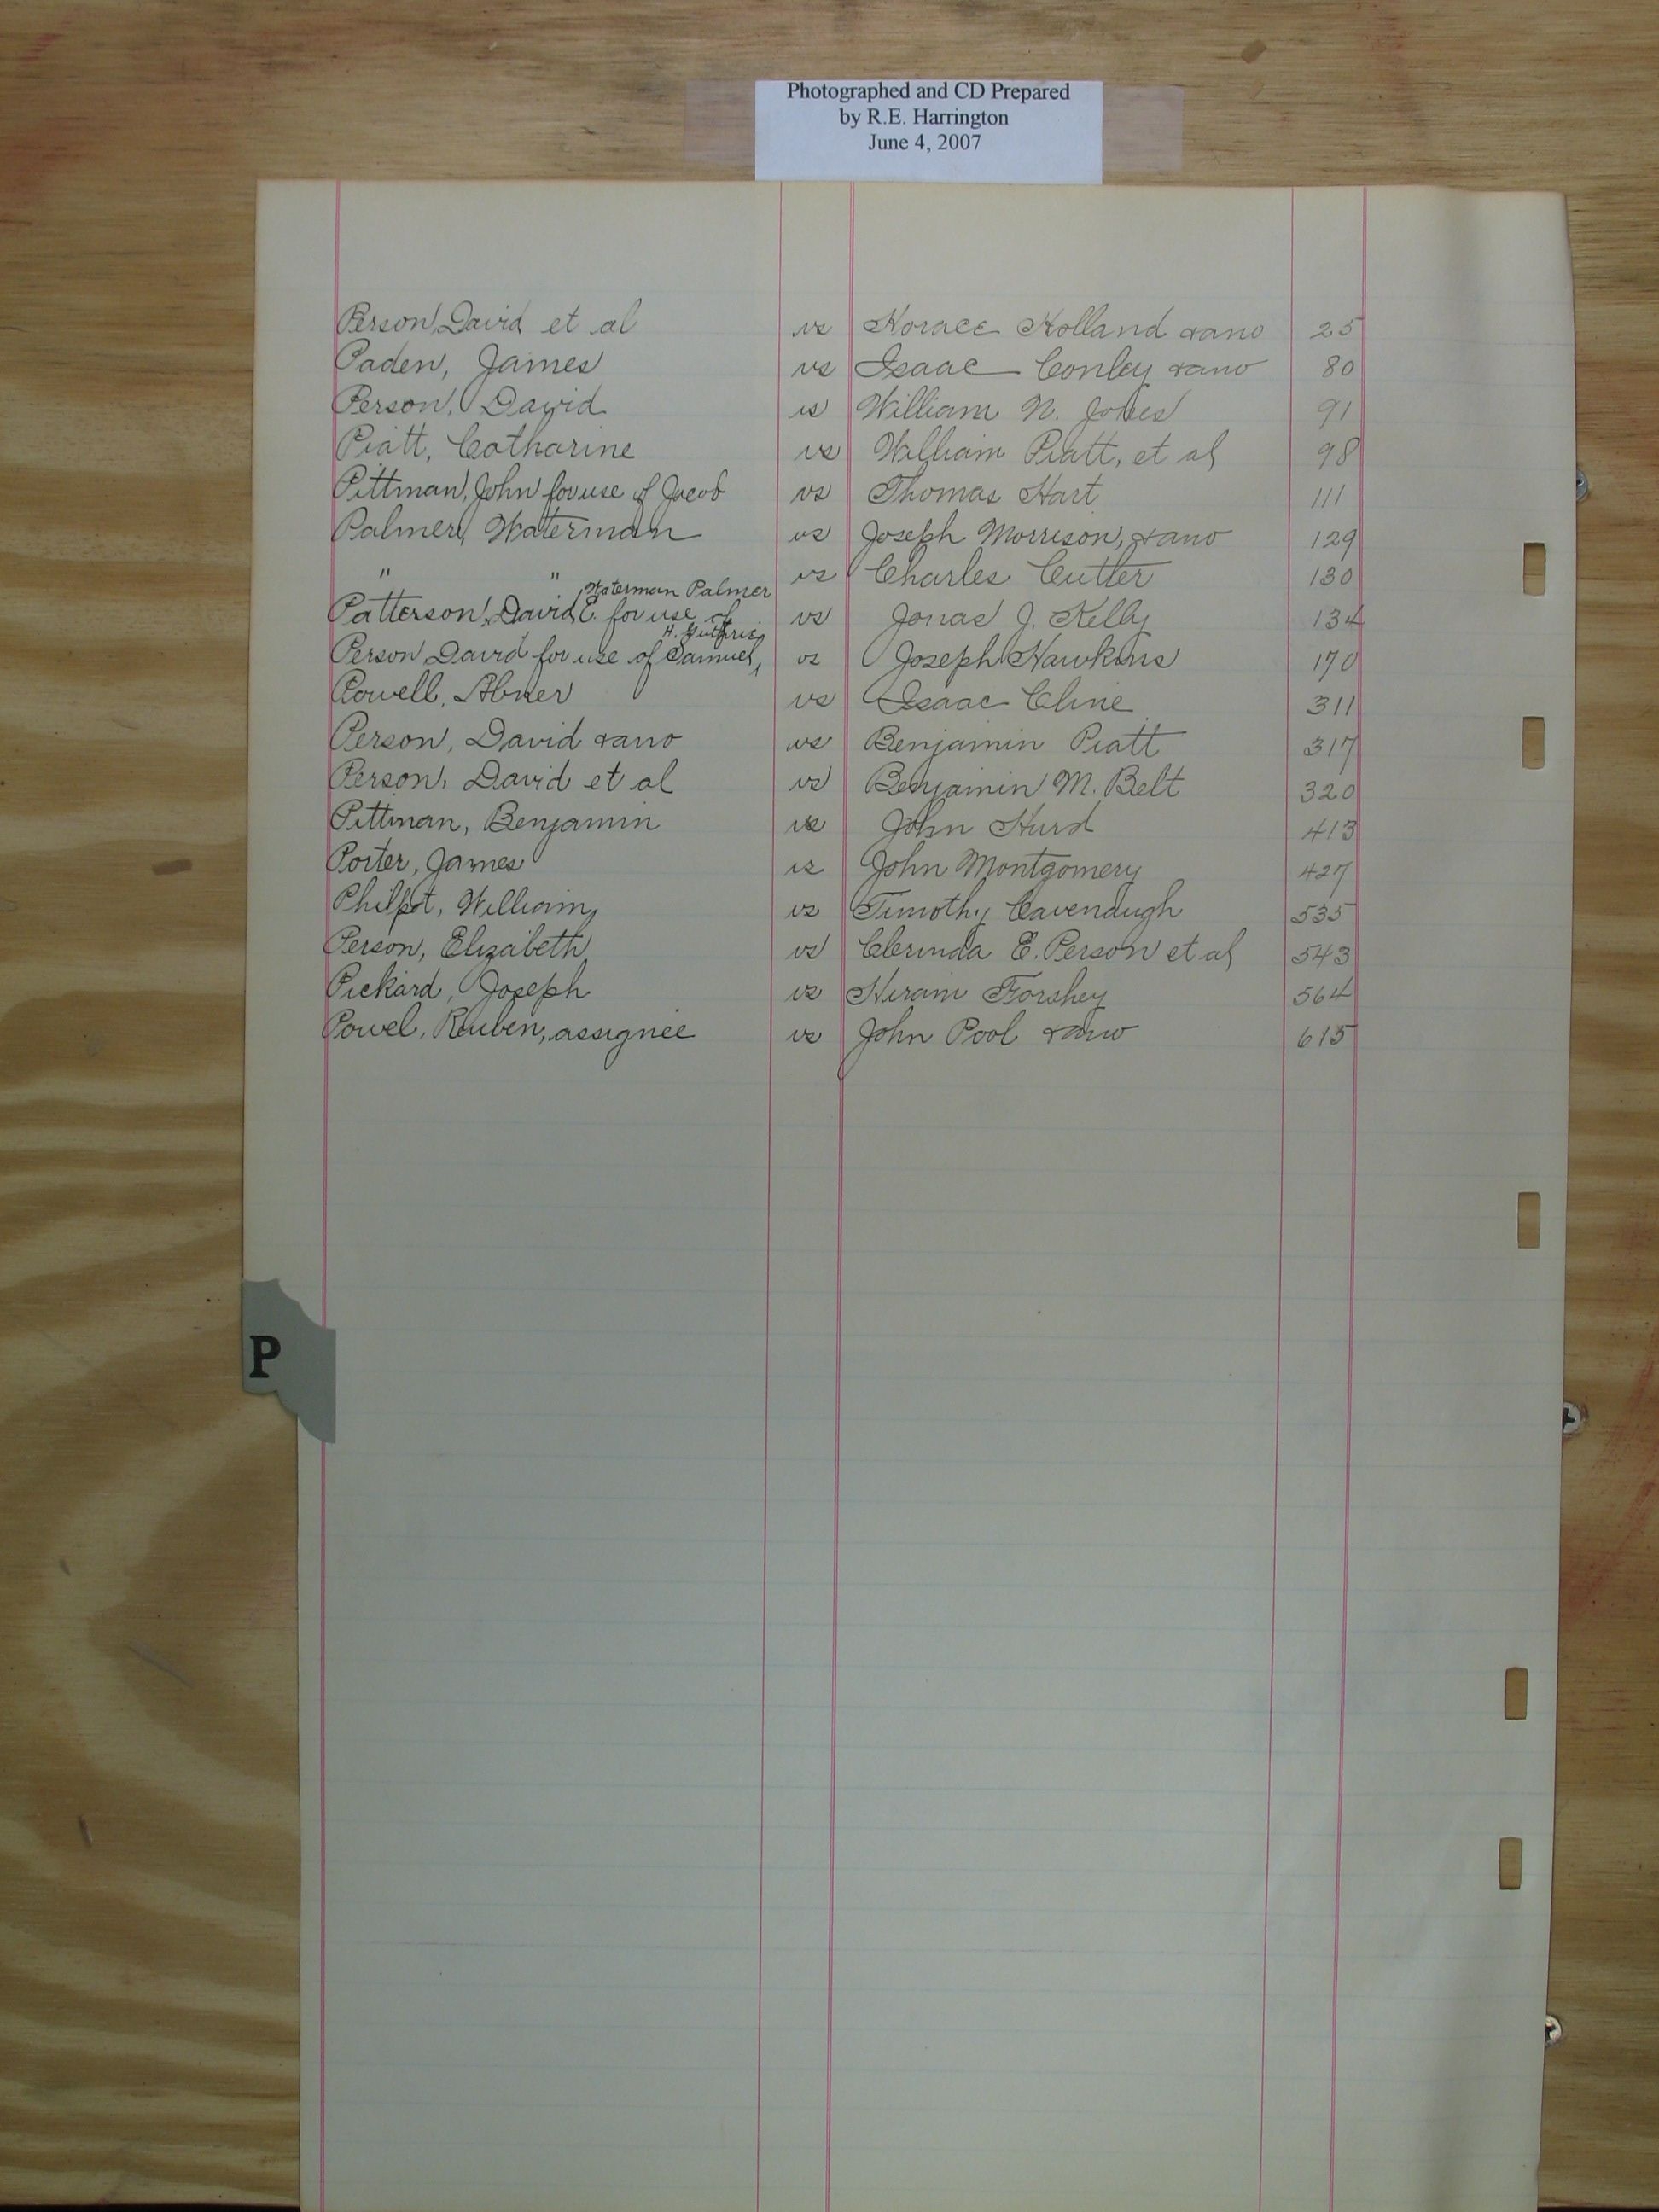 Photographed and CD Prepared
by R.E. Harrington
June 4, 2007
Person, David et al vs Horace Holland & ano 25
Paden, James vs Isaac Conley & ano 80
Person, David vs William N. Jones 91
Piatt, Catharine vs William Piatt, et al 98
Pittman, John for use of Jacob vs Thomas Hart 111
Palmer, Waterman vs Joseph Morrison, & ano 129
" " vs Charles Cutler 130
Waterman Palmer
Patterson, David E. for use of vs Jonas J. Kelly 134
H. Guthrie
Person David for use of Samuel, vs Joseph Hawkins 170
Powell, Abner vs Isaac Cline 311
Person, David & ano vs Benjamin Piatt 317
Person, David et al vs Benjamin M. Belt 320
Pittman, Benjamin vs John Hurd 413
Porter, James vs John Montgomery 427
Philpot, William, vs Timothy Cavendugh 535
Person, Elizabeth vs Clerinda E. Person et al 543
Pickard, Joseph vs Hiram Forshey 564
Powel, Reuben, assignee vs John Pool & ano 615
P